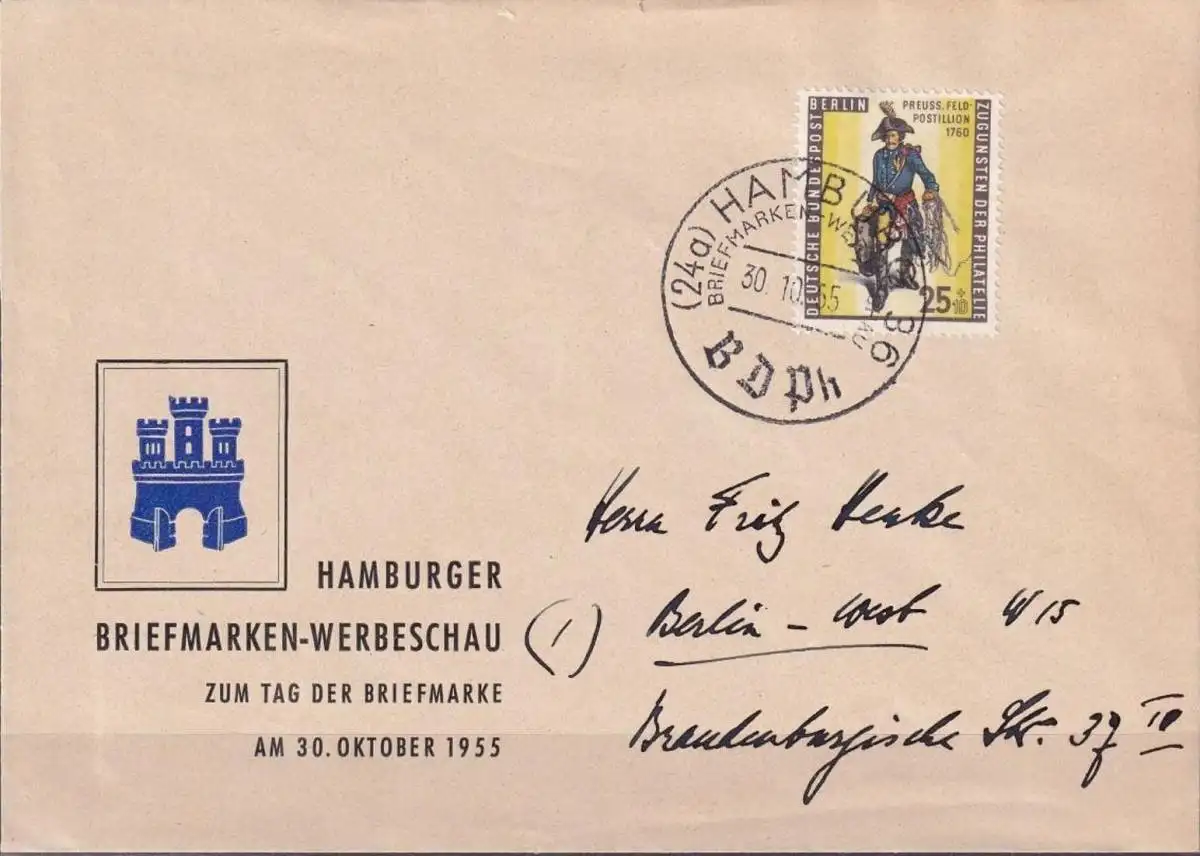 DEUTSCHE BUNDESPOST BERLIN
PREUSS. FELD-
POSTILLION
1760
ZUGUNSTEN DER PHILATELIE
25+10
(24a) HAMBURG 36
BRIEFMARKEN-WERBESCHAU
30. 10. 55
BDPh
HAMBURGER
BRIEFMARKEN-WERBESCHAU
ZUM TAG DER BRIEFMARKE
AM 30. OKTOBER 1955
Herrn Fritz Henke
(1) Berlin - West W 15
Brandenburgische Str. 37 III